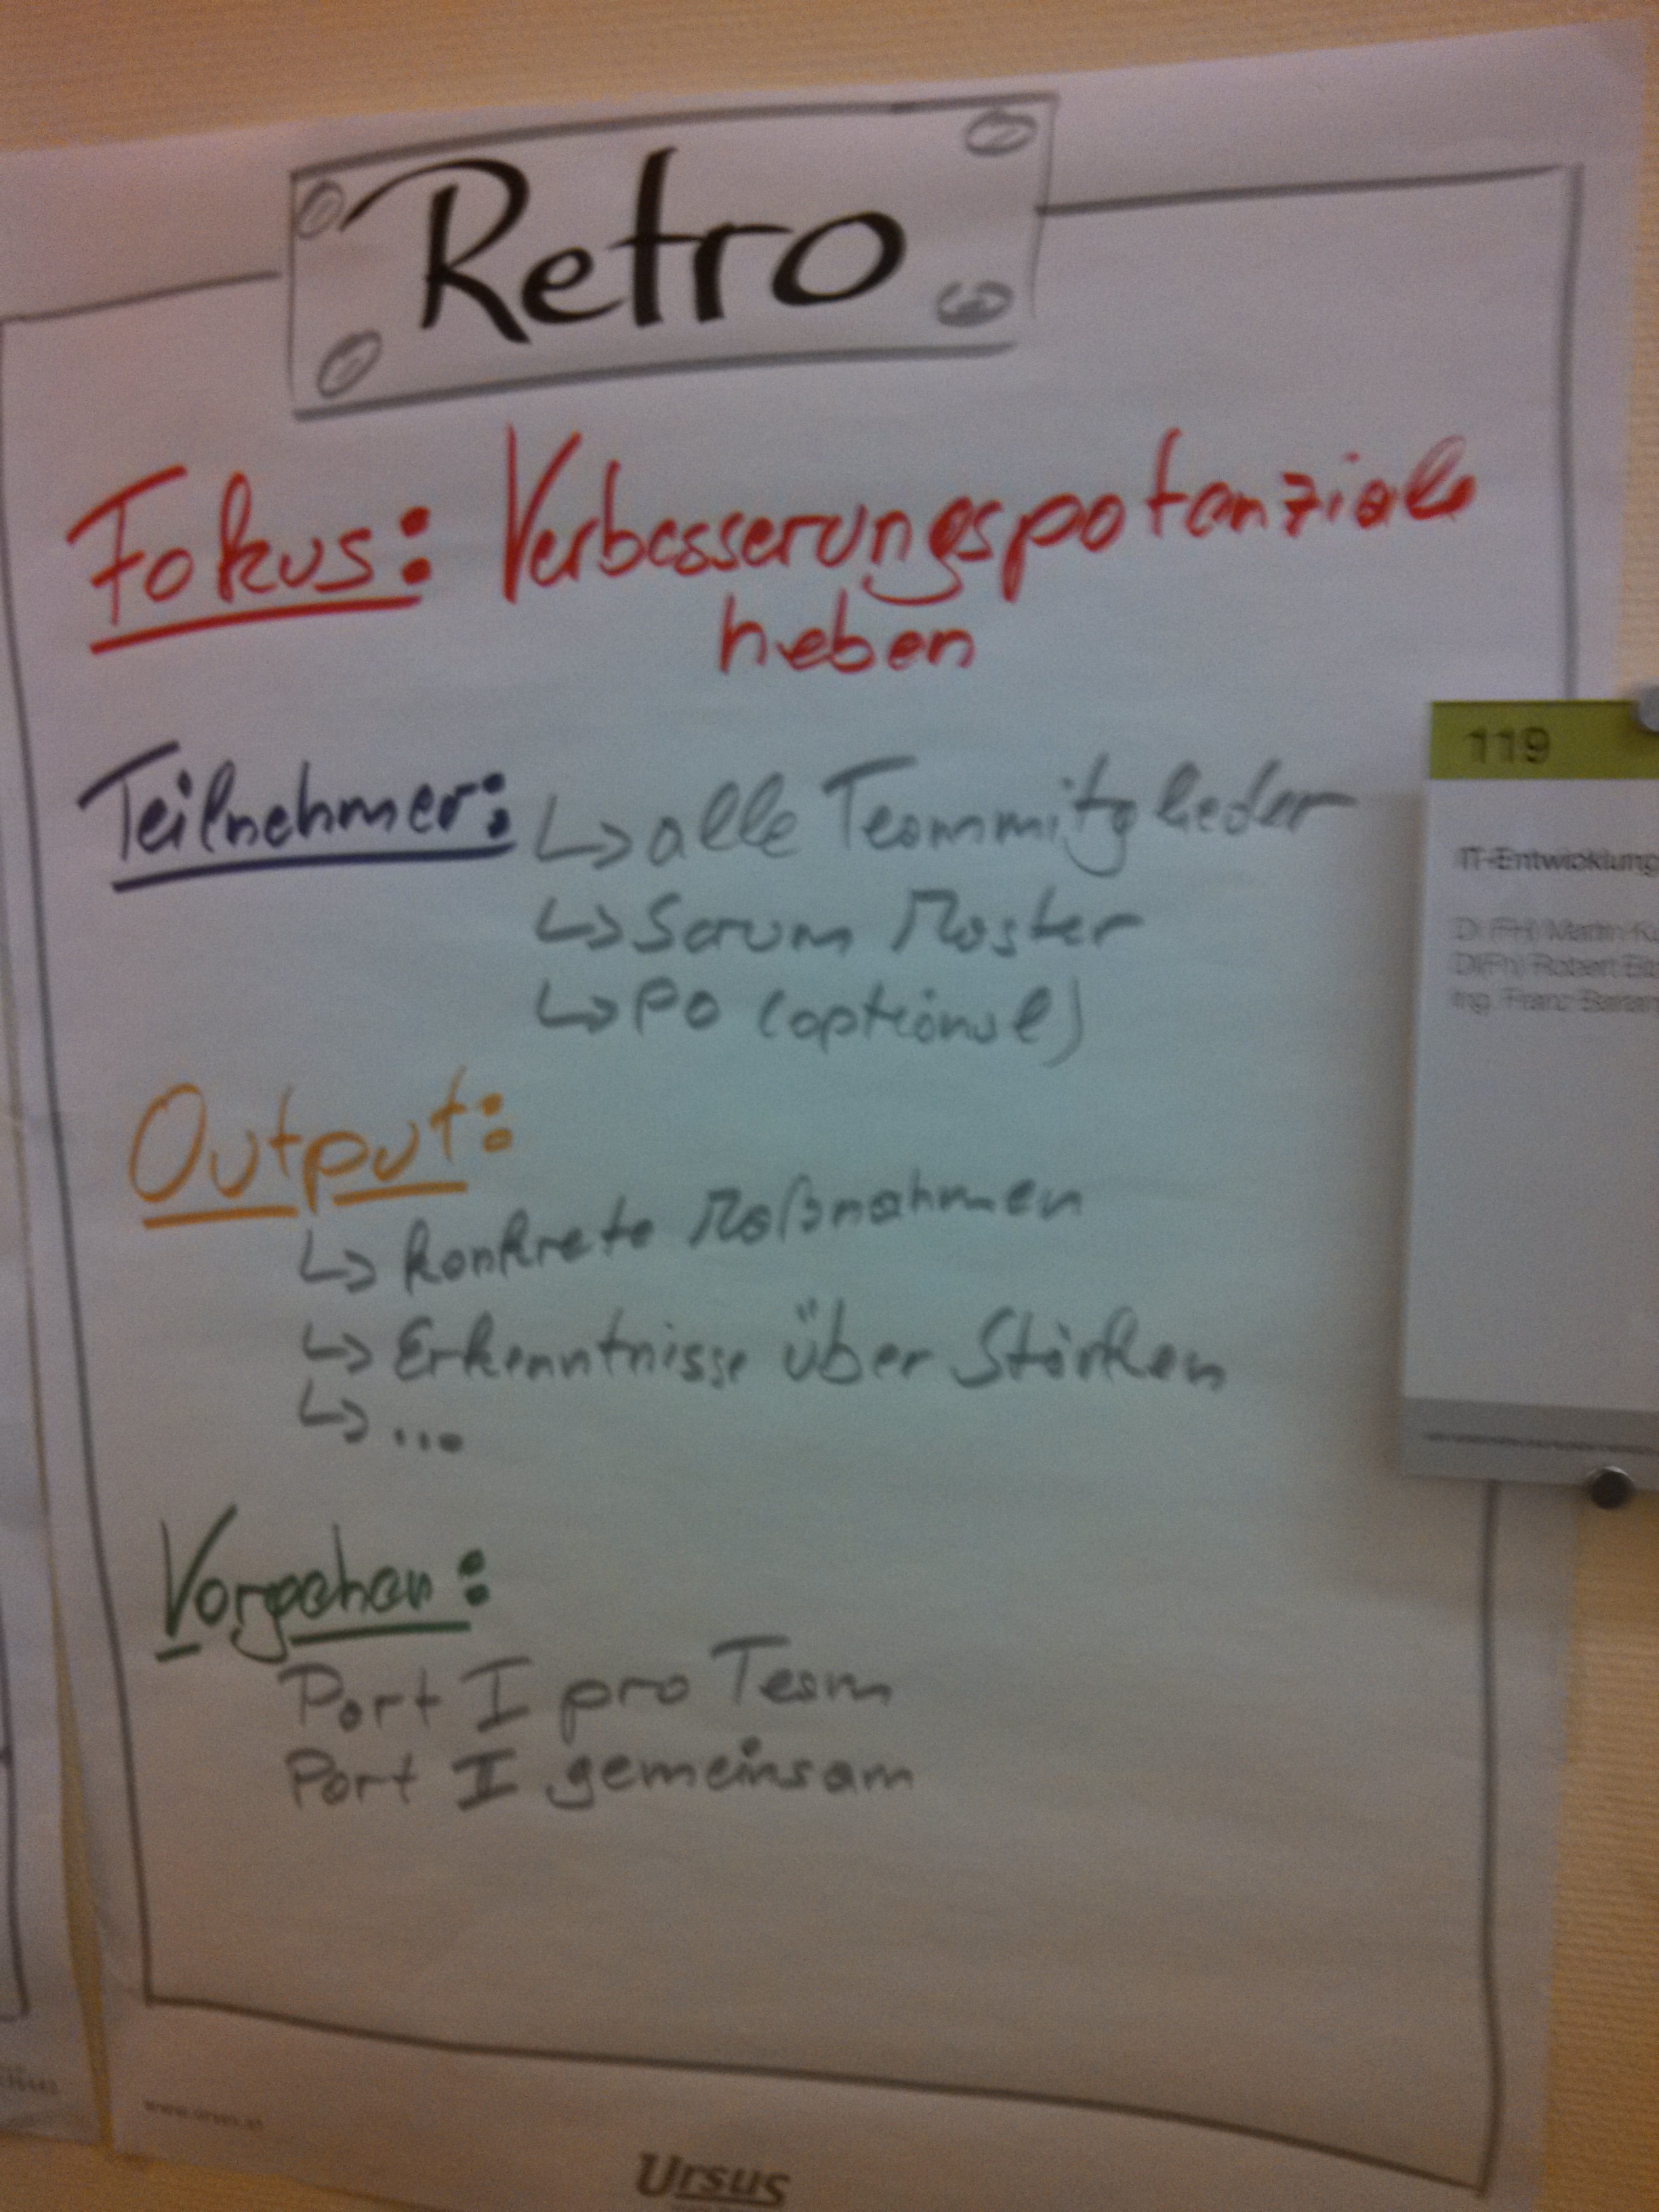 Retro
Fokus: Verbesserungspotenziale
heben
Teilnehmer: ↳ alle Teammitglieder
↳ Scrum Master
↳ PO (optional)
Output:
↳ konkrete Maßnahmen
↳ Erkenntnisse über Stärken
↳ ...
Vorgehen:
Part I pro Team
Part II gemeinsam
119
IT-Entwicklung
DI (FH) Martin
DI(Fh) Robert
Ing. Franz
www.ursus.at
Ursus